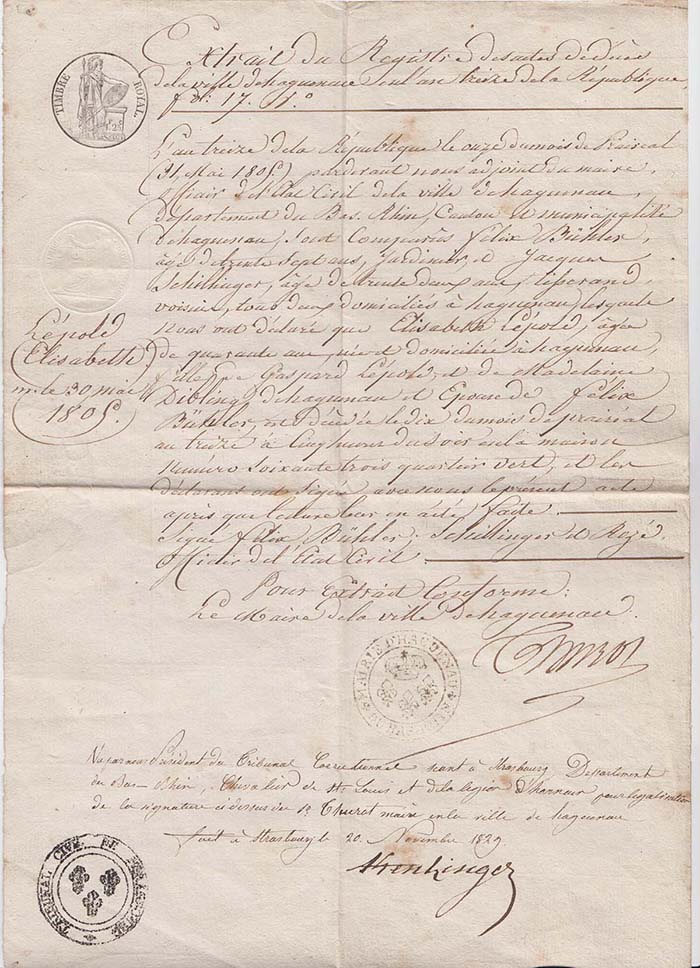 TIMBRE ROYAL
Extrait du Registre des actes de décé
de la ville d'haguenau en l'an treize de la République,
L'an treize de la République le onze du mois de Prairéal
(31. Mai 1805) pardevant nous adjoint du maire,
officier de l'Etat Civil de la ville d'haguenau,
département du Bas-Rhin, Canton et municipalité
d'haguenau, sont Comparûs Félix Bühler,
âgé de trente sept ans, jardinier, et Jacques
Schillinger, âgé de trente deux ans,
voisin, tous deux domiciliés à haguenau, lesquels
nous ont déclaré que Elisabeth Lépold, âgée
de quarante ans, née et domiciliée à haguenau,
fille de Gaspard Lépold, et de Madelaine
Dibling d'haguenau et Epouse de Félix
Bühler, est décédée le dix du mois de prairéal
an treize à Cinq heures du Soir en la maison
numéro soixante trois quartier vert, et les
déclarans ont signé, avec nous le présent acte
après que lecture leur en a été faite.
Signé Félix Bühler, Schillinger et
officier de l'Etat Civil.
Lépold
Elisabeth
m. le 30 mai
1805.
Pour Extrait Conforme:
Le Maire de la ville d'haguenau.
MAIRIE D'HAGUENAU
BAS-RHIN
Vu par nous Président du Tribunal Correctionnel séant à Strasbourg Département
du Bas-Rhin, Chevalier de St. Louis et de la légion d'Honneur pour légalisation
de la signature ci dessus du Sr. Thuret maire en la ville de haguenau
fait à Strasbourg le 20. Novembre 1829
TRIBUNAL CIVIL DE STRASBOURG